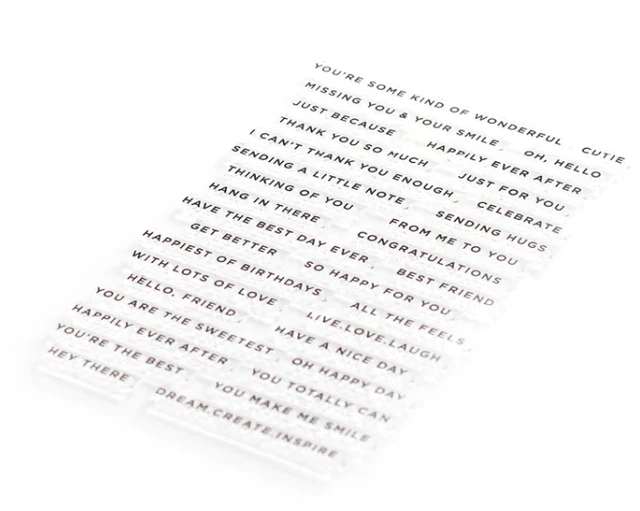 YOU'RE SOME KIND OF WONDERFUL CUTIE
MISSING YOU & YOUR SMILE OH, HELLO
JUST BECAUSE HAPPILY EVER AFTER
THANK YOU SO MUCH JUST FOR YOU
I CAN'T THANK YOU ENOUGH CELEBRATE
SENDING A LITTLE NOTE SENDING HUGS
THINKING OF YOU FROM ME TO YOU
HANG IN THERE CONGRATULATIONS
HAVE THE BEST DAY EVER BEST FRIEND
GET BETTER SO HAPPY FOR YOU
HAPPIEST OF BIRTHDAYS ALL THE FEELS
WITH LOTS OF LOVE LIVE.LOVE.LAUGH
HELLO, FRIEND HAVE A NICE DAY
YOU ARE THE SWEETEST OH HAPPY DAY
HAPPILY EVER AFTER YOU TOTALLY CAN
YOU'RE THE BEST YOU MAKE ME SMILE
HEY THERE DREAM.CREATE.INSPIRE